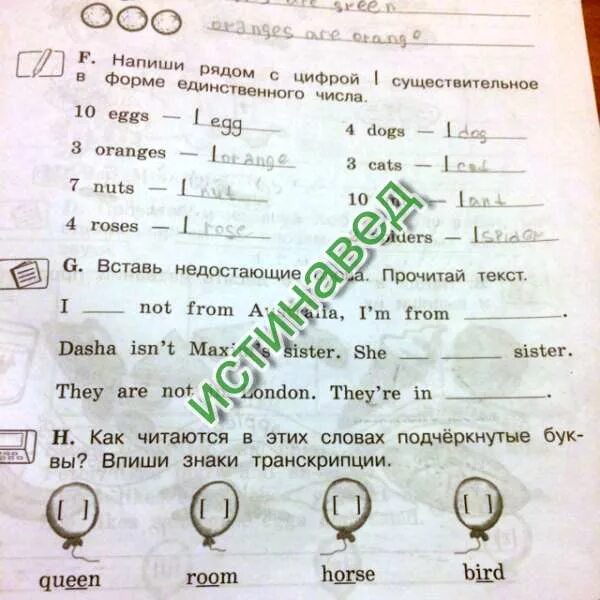 are green
oranges are orange
F. Напиши рядом с цифрой 1 существительное
в форме единственного числа.
10 eggs – 1 egg 4 dogs – 1 dog
3 oranges – 1 orange 3 cats – 1 cat
7 nuts – 1 nut 10 – 1 ant
4 roses – 1 rose – 1 spider
G. Вставь недостающие слова. Прочитай текст.
I ___ not from Australia, I'm from ___.
Dasha isn't Maxim's sister. She ___ ___ sister.
They are not London. They're in ___.
H. Как читаются в этих словах подчёркнутые бук-
вы? Впиши знаки транскрипции.
[ ] [ ] [ ] [ ]
queen room horse bird
ИСТИНАВЕД